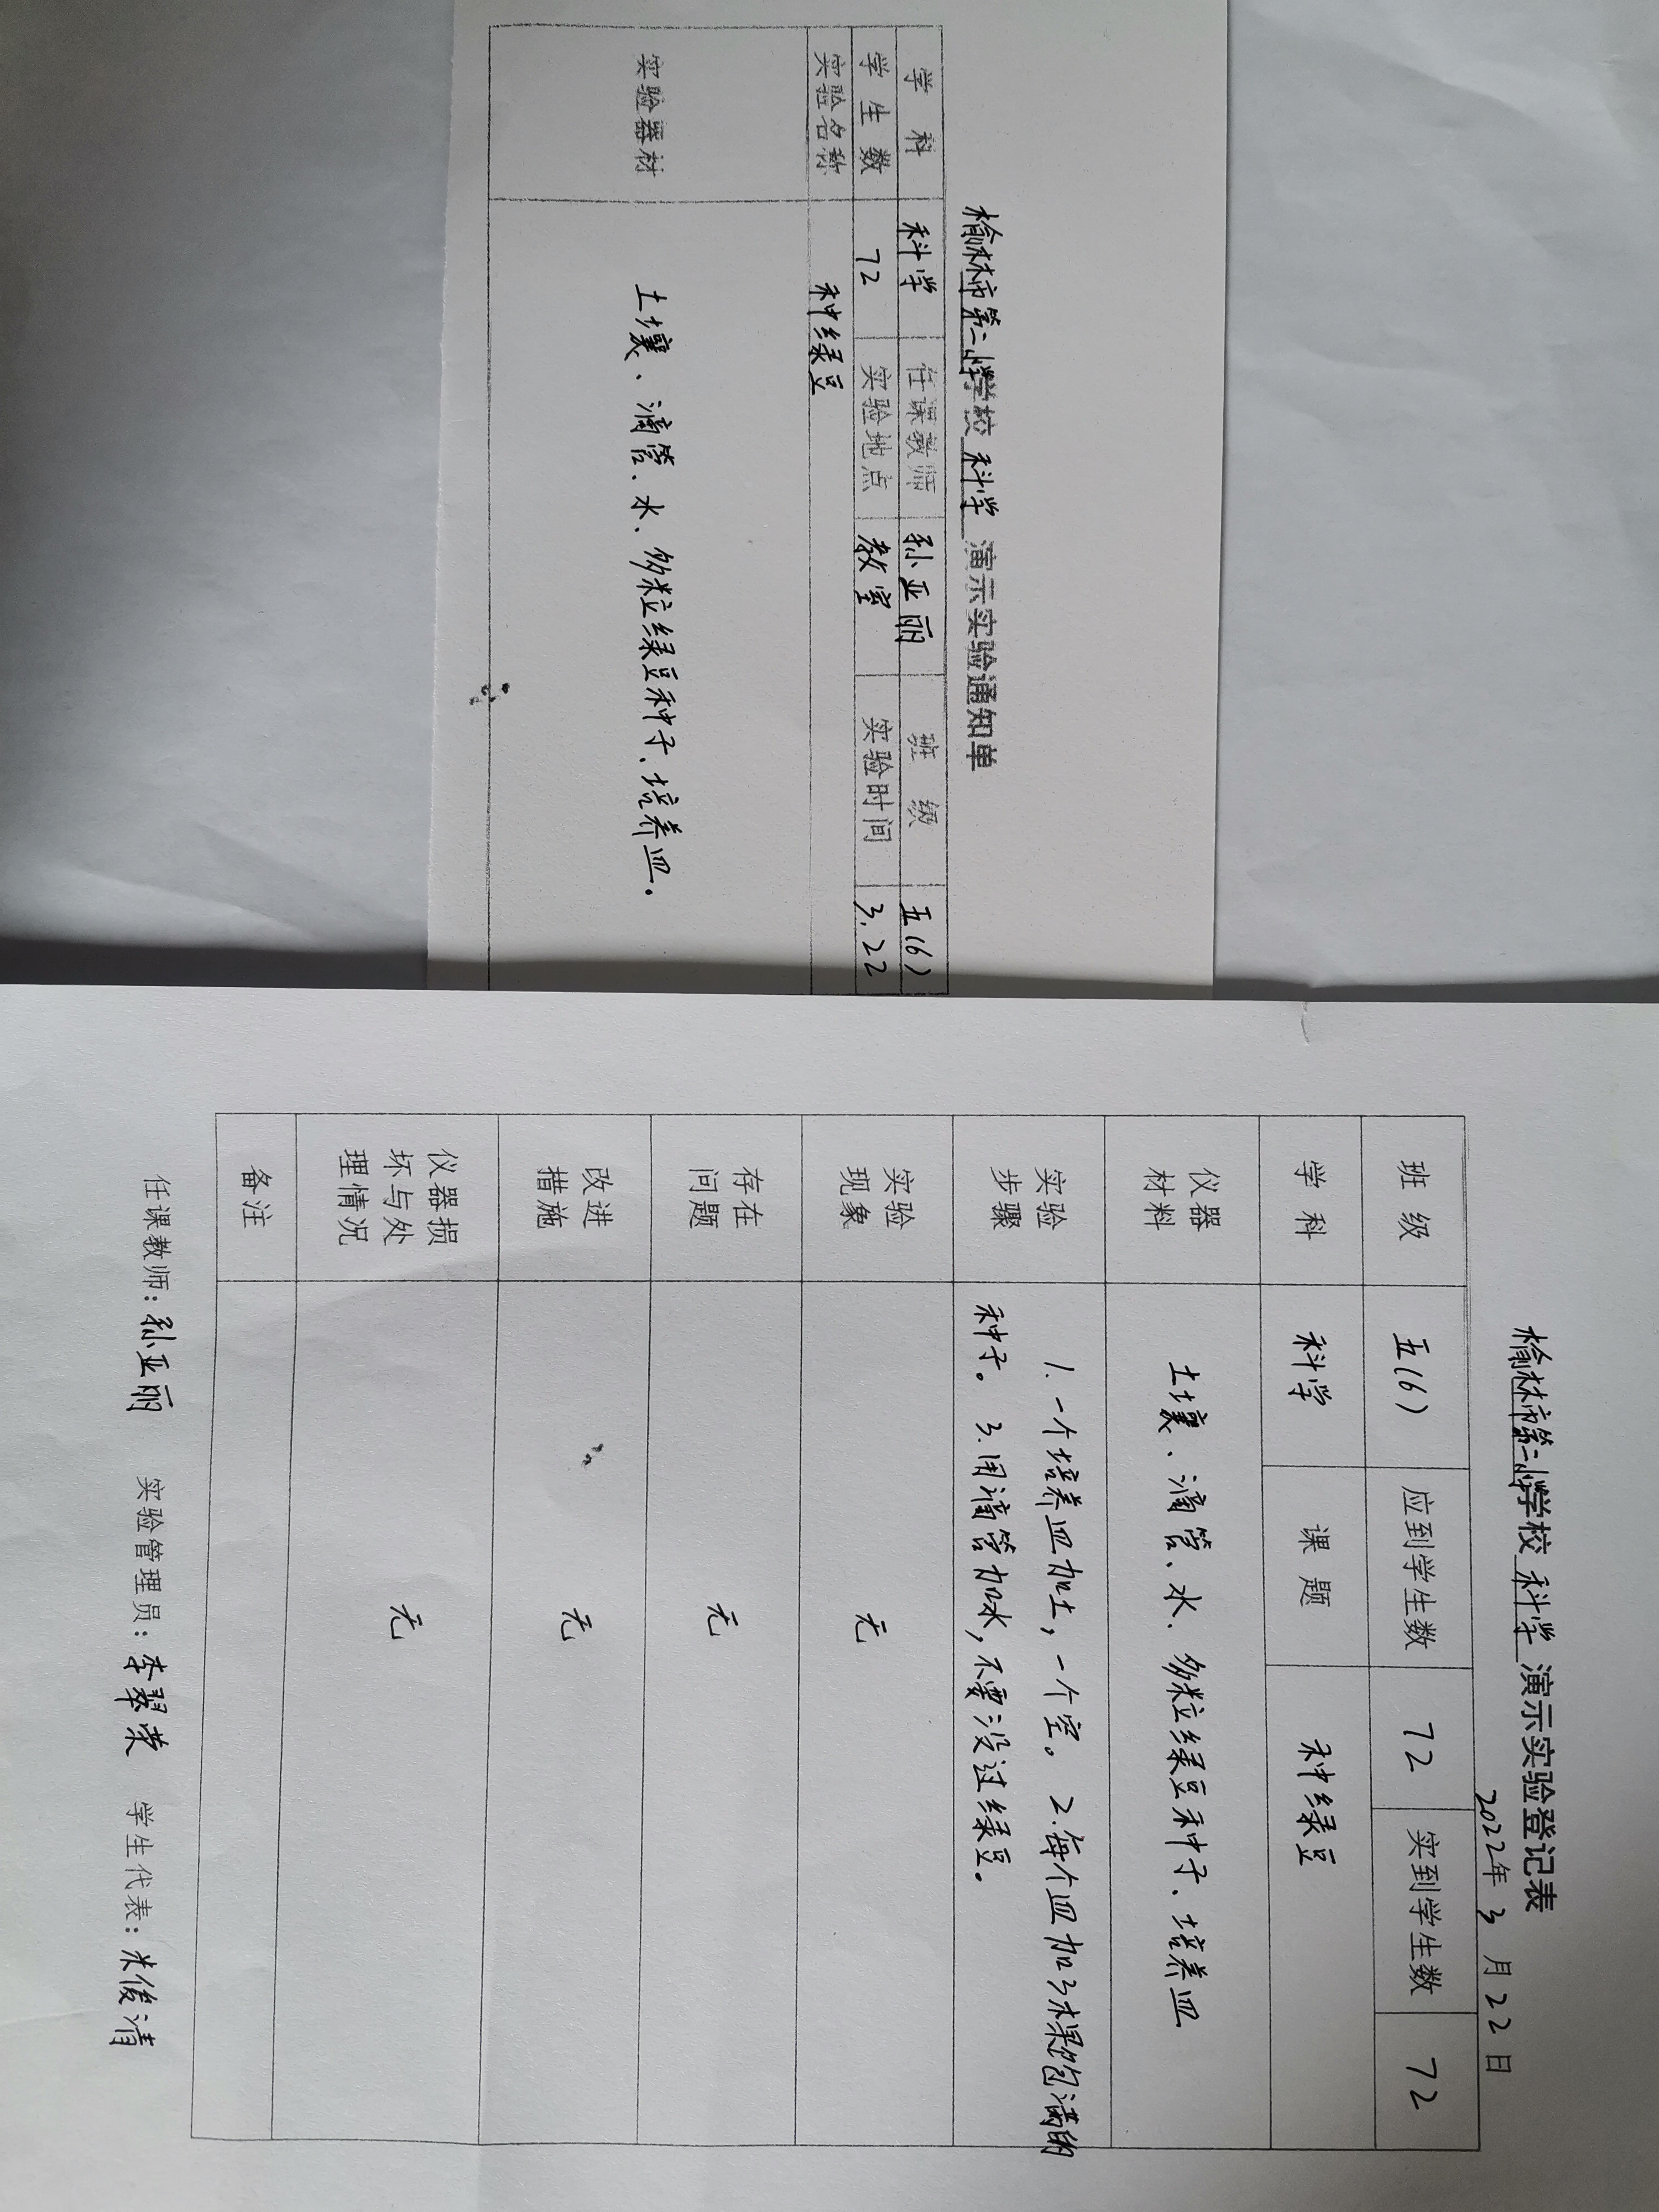 榆林市第二小学学校 科学 演示实验通知单
学 科 科学 任课教师 孙亚丽 班 级 五(6)
学生数 72 实验地点 教室 实验时间 3.22
实验名称 种绿豆
实验器材 土壤、滴管、水、多粒绿豆种子、培养皿。
榆林市第二小学学校 科学 演示实验登记表
2022年 3 月 22 日
班 级 五(6) 应到学生数 72 实到学生数 72
学 科 科学 课 题 种绿豆
仪器
材料
土壤、滴管、水、多粒绿豆种子、培养皿
实验
步骤
1. 一个培养皿加土，一个空。2.每个皿加3棵饱满的
种子。 3.用滴管加水，不要没过绿豆。
实验
现象
无
存在
问题
无
改进
措施
无
仪器损
坏与处
理情况
无
备注
任课教师：孙亚丽 实验管理员：李翠荣 学生代表：米俊清